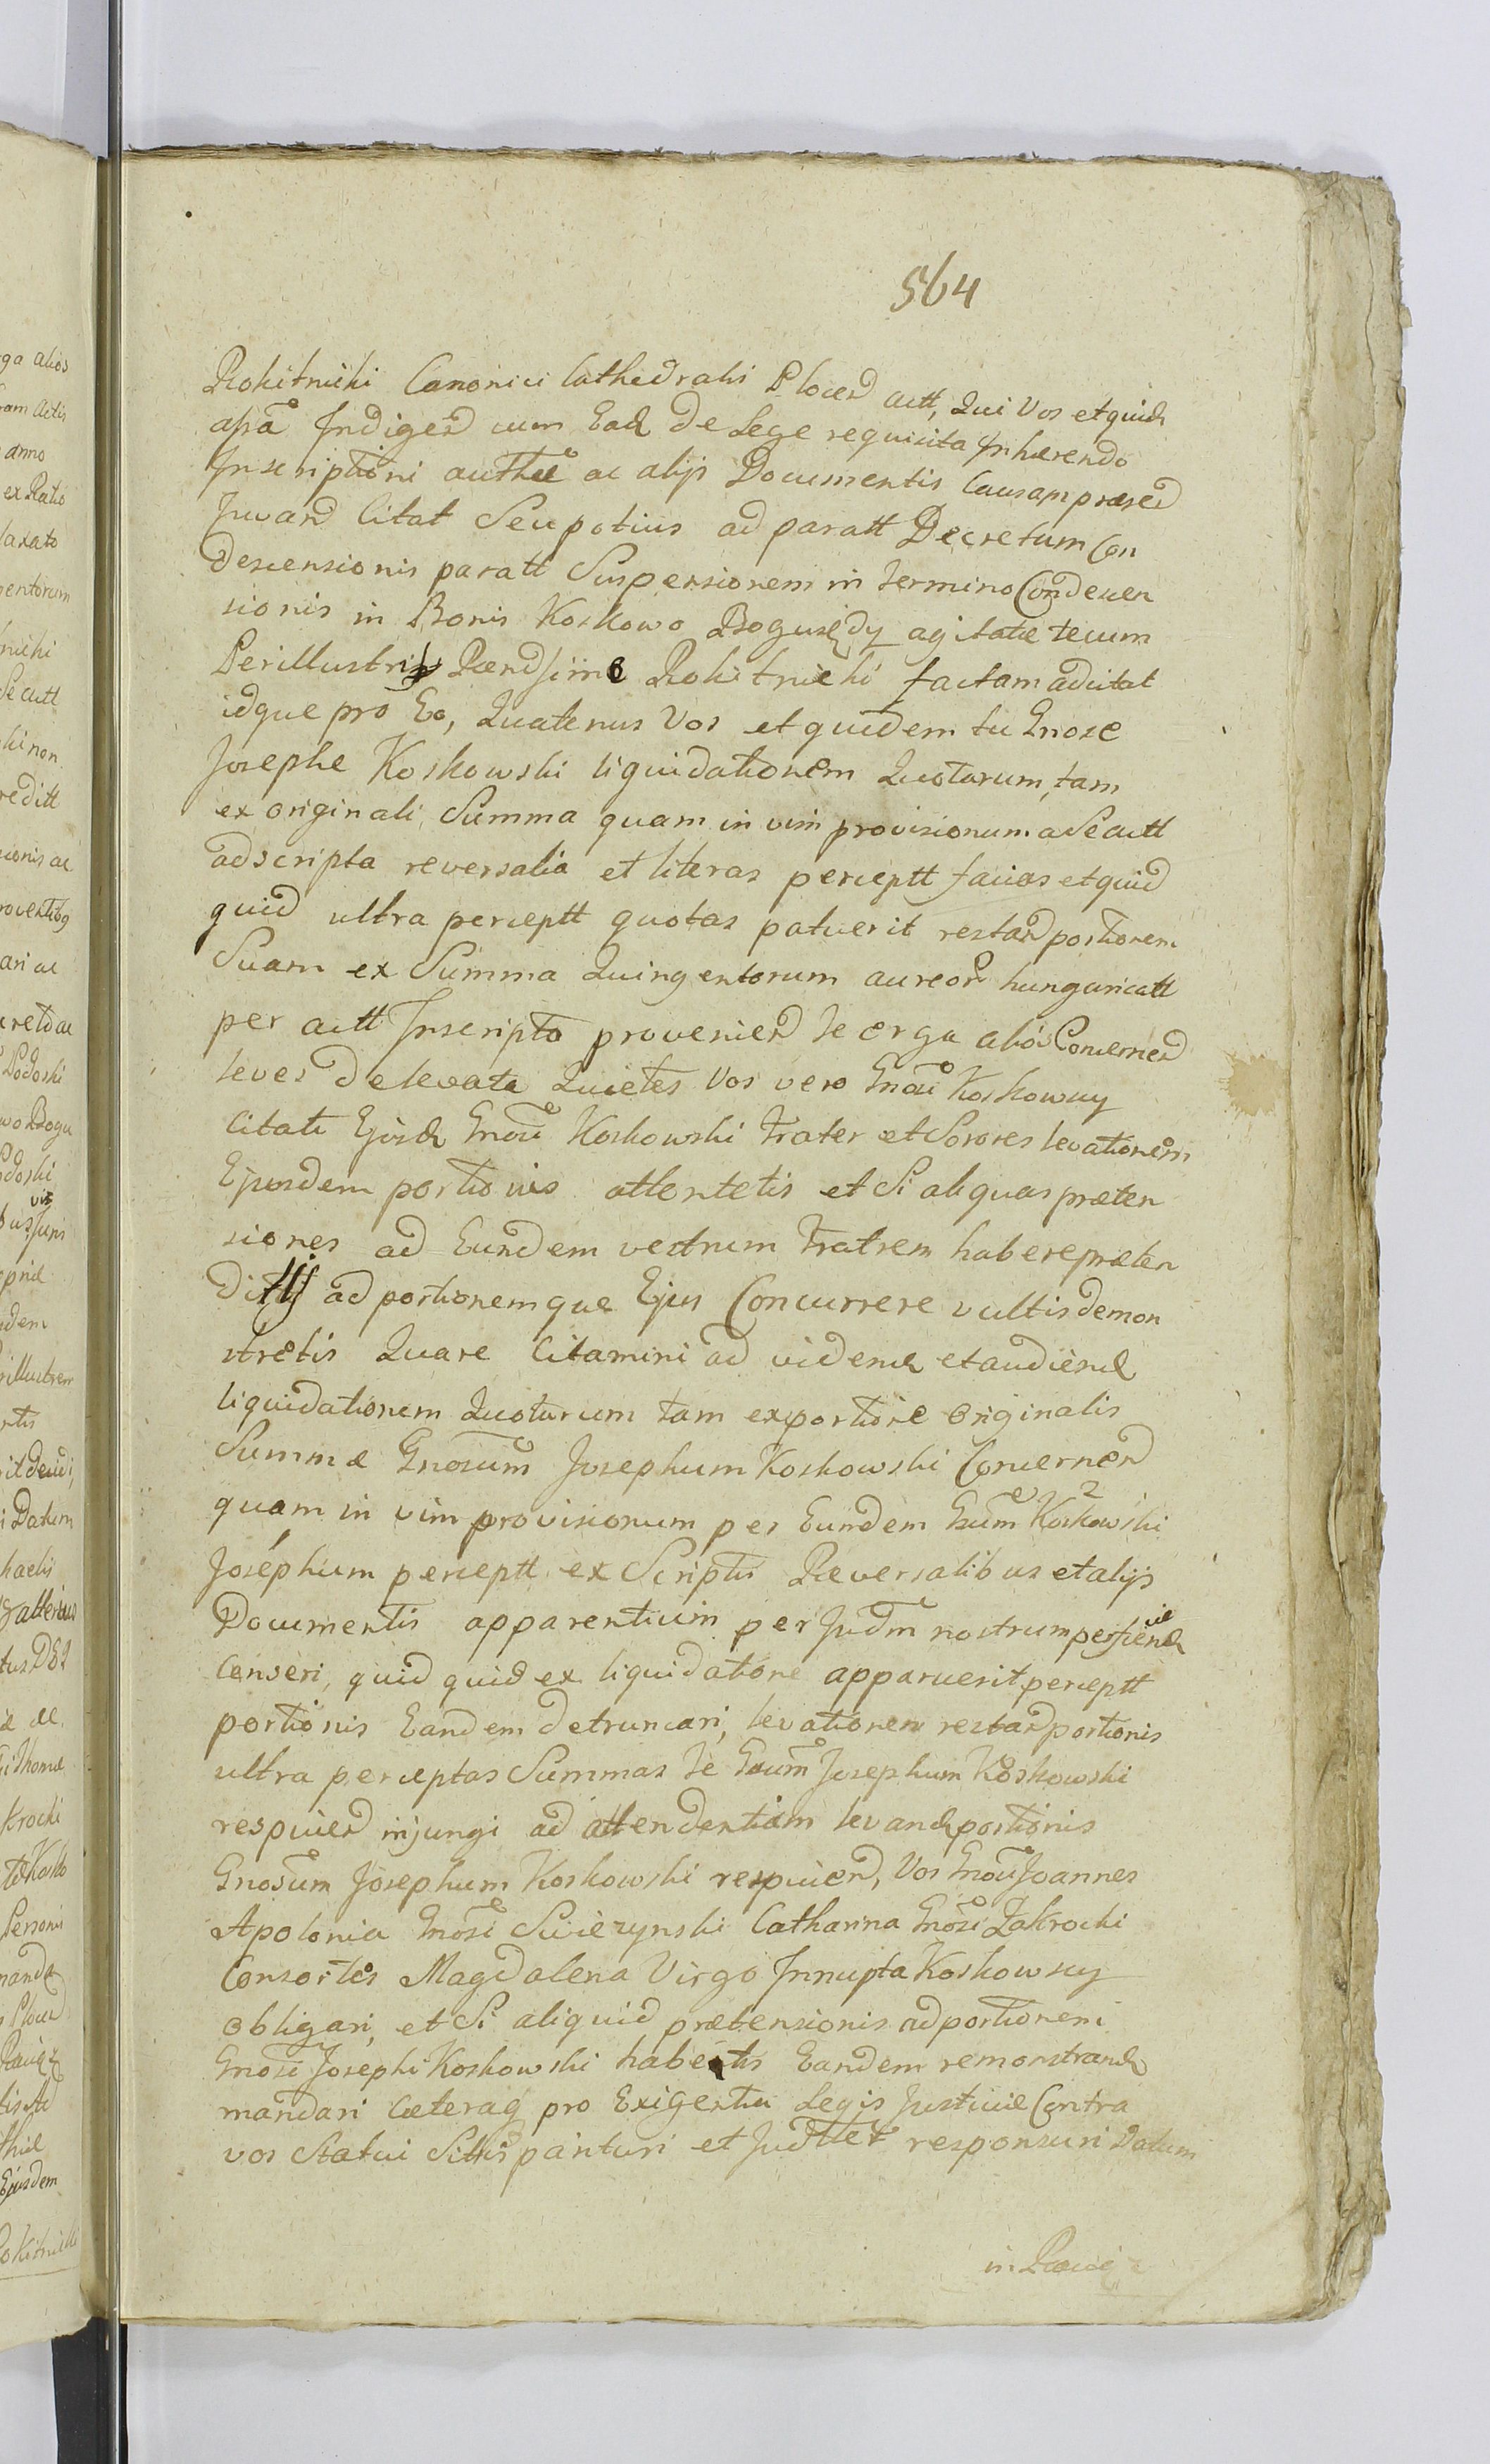 564
Rokitnicki Canonici Cathedralis Plocen actt, Qui Vos et quidem
assa Indigen cum Ead de Lege requisita Inhærendo
Inscriptioni authæ ac alijs Documentis Causam præsen
Juvand Citat Seu potius ad paratt Decretum Con
descensionis paratt Suspensionem in termino Condescen
sionis in Bonis Koskowo Bogusędy agitatæ tecum
Perillustris Rendssime Rokitnicki factam adcitat
idque pro Eo, Quatenus Vos et quidem tu Gnose
Josephe Koskowski liquidationem Quotarum, tam
ex originali Summa quam in vim provisionum a Se actt
ad scripta reversalia et literas perceptt facias et quid
quid ultra perceptt quotas patuerit restan portionem
Suam ex Summa Quingentorum aureor hungaricatt
per actt Inscripto provenien te erga alios Concernen
leves delevata Quietes Vos vero Gnosi Koskowscy
Citati Ejusd Gnosi Koskowski frater et Sorores levationem
Ejusdem portionis attentetis et Si aliquas præten
siones ad Eundem vestrum fratrem habere præten
ditis ad portionemque Ejus Concurrere vultis demon
stretis Quare Citamini ad vidend et audiend
liquidationem Quotarum tam ex portione originalis
Summæ Gnosum Josephum Koskowski Concernen
quam in vim provisionum per Eundem Gsum Koskowski
Josephum perceptt ex Scriptis Reversalibus et alijs
Documentis apparentium per Judm nostrum perficiend
Censeri, quid quid ex liquidatione apparuerit perceptt
portionis Eandem detruncari, levationem restan portionis
ultra perceptas Summas te Gsum Josephum Koskowski
respicien injungi ad attendentiam levand portionis
Gnosum Josephum Koskowski respicien, Vos Gnosi Joannes
Apolonia Gnosi Swierzynski Catharina Gnosi Zakrocki
Consortes Magdalena Virgo Innupta Koskowscy
obligari, et Si aliquid prætensionis ad portionem
Gnosi Josephi Koskowski habetis Eandem remonstrand
mandari Cæteraq pro Exigentia Legis Justitiæ Contra
vos Statui Sitis parituri et Judtter responsuri Datum
in Raciąż